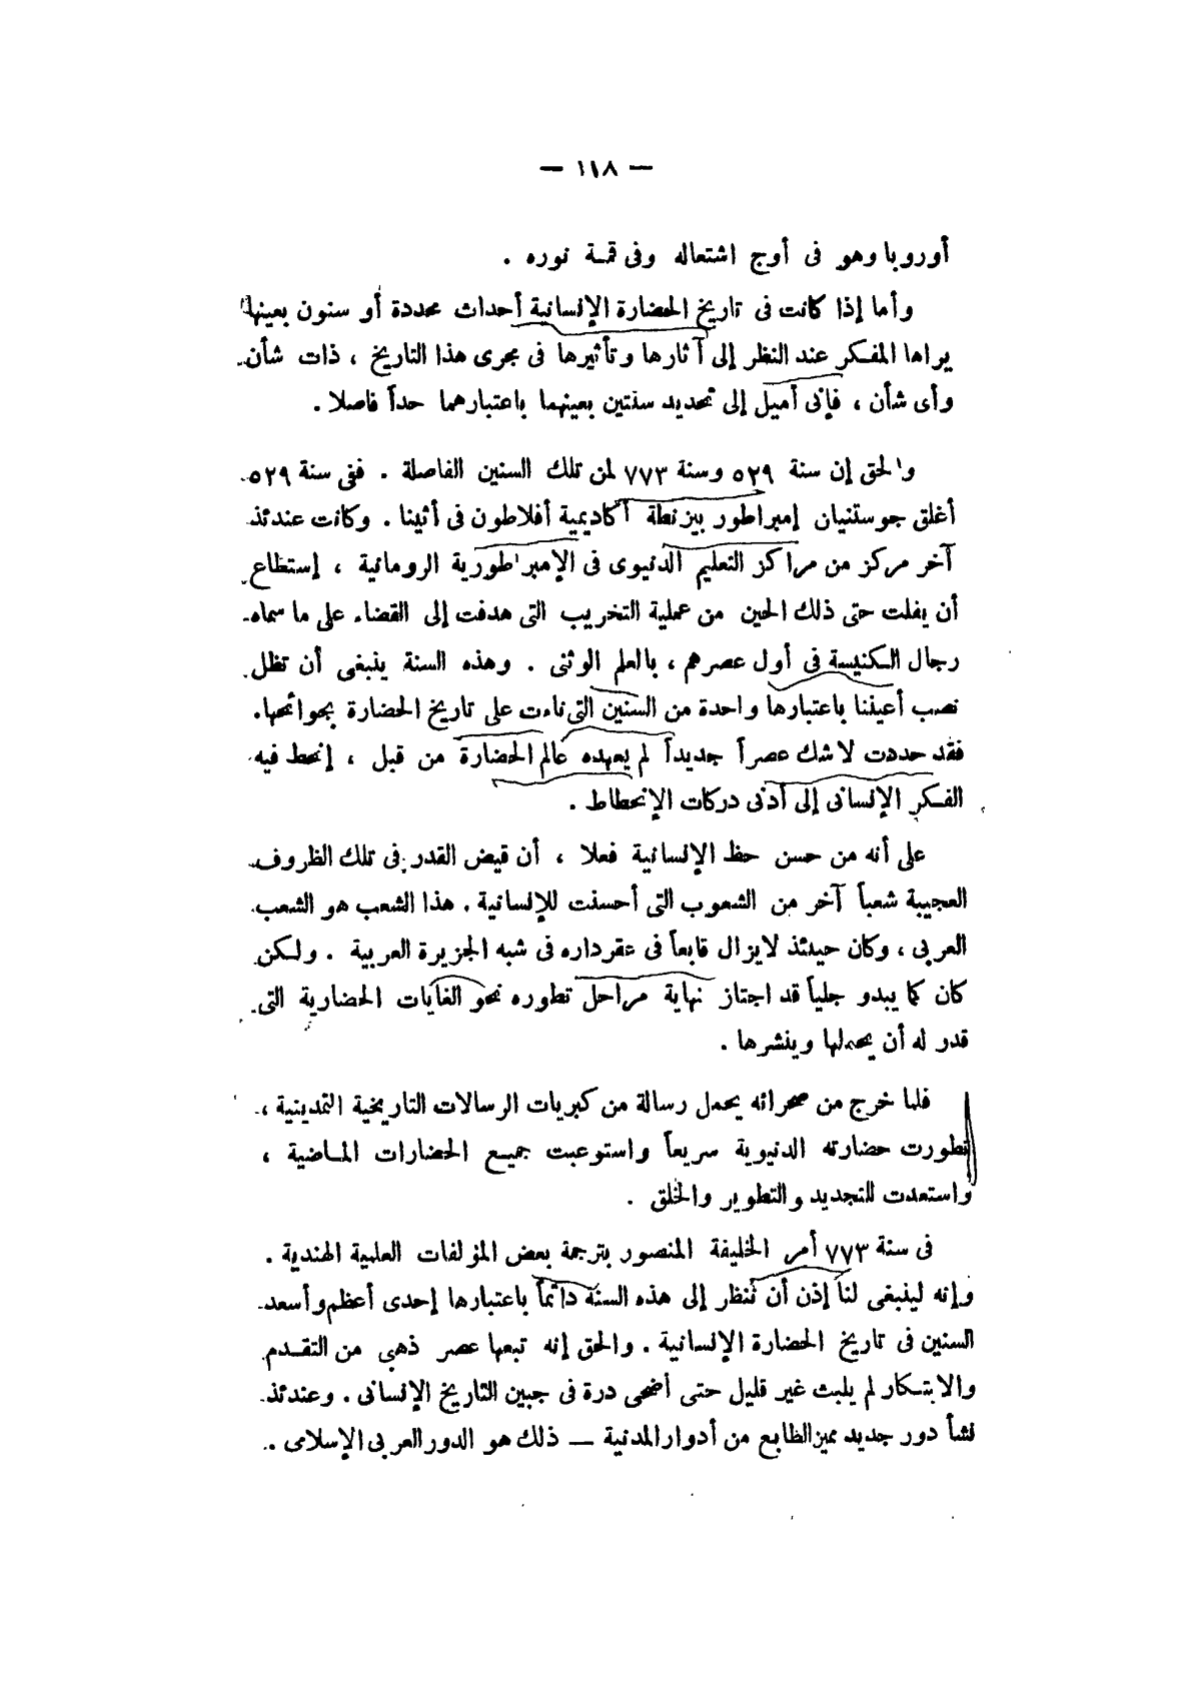 — ١١٨ —
أوروبا وهو فى أوج اشتعاله وفى قمة نوره .
وأما إذا كانت فى تاريخ الحضارة الإنسانية أحداث محددة أو سنون بعينها
يراها المفكر عند النظر إلى آثارها وتأثيرها فى مجرى هذا التاريخ ، ذات شأن
وأى شأن ، فإنى أميل إلى تحديد سنتين بعينهما باعتبارهما حداً فاصلا .
والحق إن سنة ٥٢٩ وسنة ٧٧٣ لمن تلك السنين الفاصلة . ففى سنة ٥٢٩
أغلق جوستنيان إمبراطور بيزنطة أكاديمية أفلاطون فى أثينا . وكانت عندئذ
آخر مركز من مراكز التعليم الدنيوى فى الإمبراطورية الرومانية ، إستطاع
أن يفلت حتى ذلك الحين من عملية التخريب التى هدفت إلى القضاء على ما سماه
رجال الكنيسة فى أول عصرهم ، بالعلم الوثنى . وهذه السنة ينبغى أن تظل
نصب أعيننا باعتبارها واحدة من السنين التى ناءت على تاريخ الحضارة بجوائحها.
فقد حددت لا شك عصراً جديداً لم يعهده عالم الحضارة من قبل ، إنحط فيه
الفكر الإنسانى إلى أدنى دركات الإنحطاط .
على أنه من حسن حظ الإنسانية فعلا ، أن قيض القدر فى تلك الظروف
العجيبة شعباً آخر من الشعوب التى أحسنت للإنسانية . هذا الشعب هو الشعب
العربى ، وكان حينئذ لا يزال قابعاً فى عقر داره فى شبه الجزيرة العربية . ولكن
كان كما يبدو جلياً قد اجتاز نهاية مراحل تطوره نحو الغايات الحضارية التى
قدر له أن يحملها وينشرها .
فلما خرج من صحرائه يحمل رسالة من كبريات الرسالات التاريخية التمدينية ،
تطورت حضارته الدنيوية سريعاً واستوعبت جميع الحضارات الماضية ،
واستعدت للتجديد والتطوير والخلق .
فى سنة ٧٧٣ أمر الخليفة المنصور بترجمة بعض المؤلفات العلمية الهندية .
وإنه لينبغى لنا إذن أن ننظر إلى هذه السنة دائماً باعتبارها إحدى أعظم وأسعد
السنين فى تاريخ الحضارة الإنسانية . والحق إنه تبعها عصر ذهبى من التقدم
والابتكار لم يلبث غير قليل حتى أضحى درة فى جبين التاريخ الإنسانى . وعندئذ
نشأ دور جديد مميز الطابع من أدوار المدنية — ذلك هو الدور العربى الإسلامى .